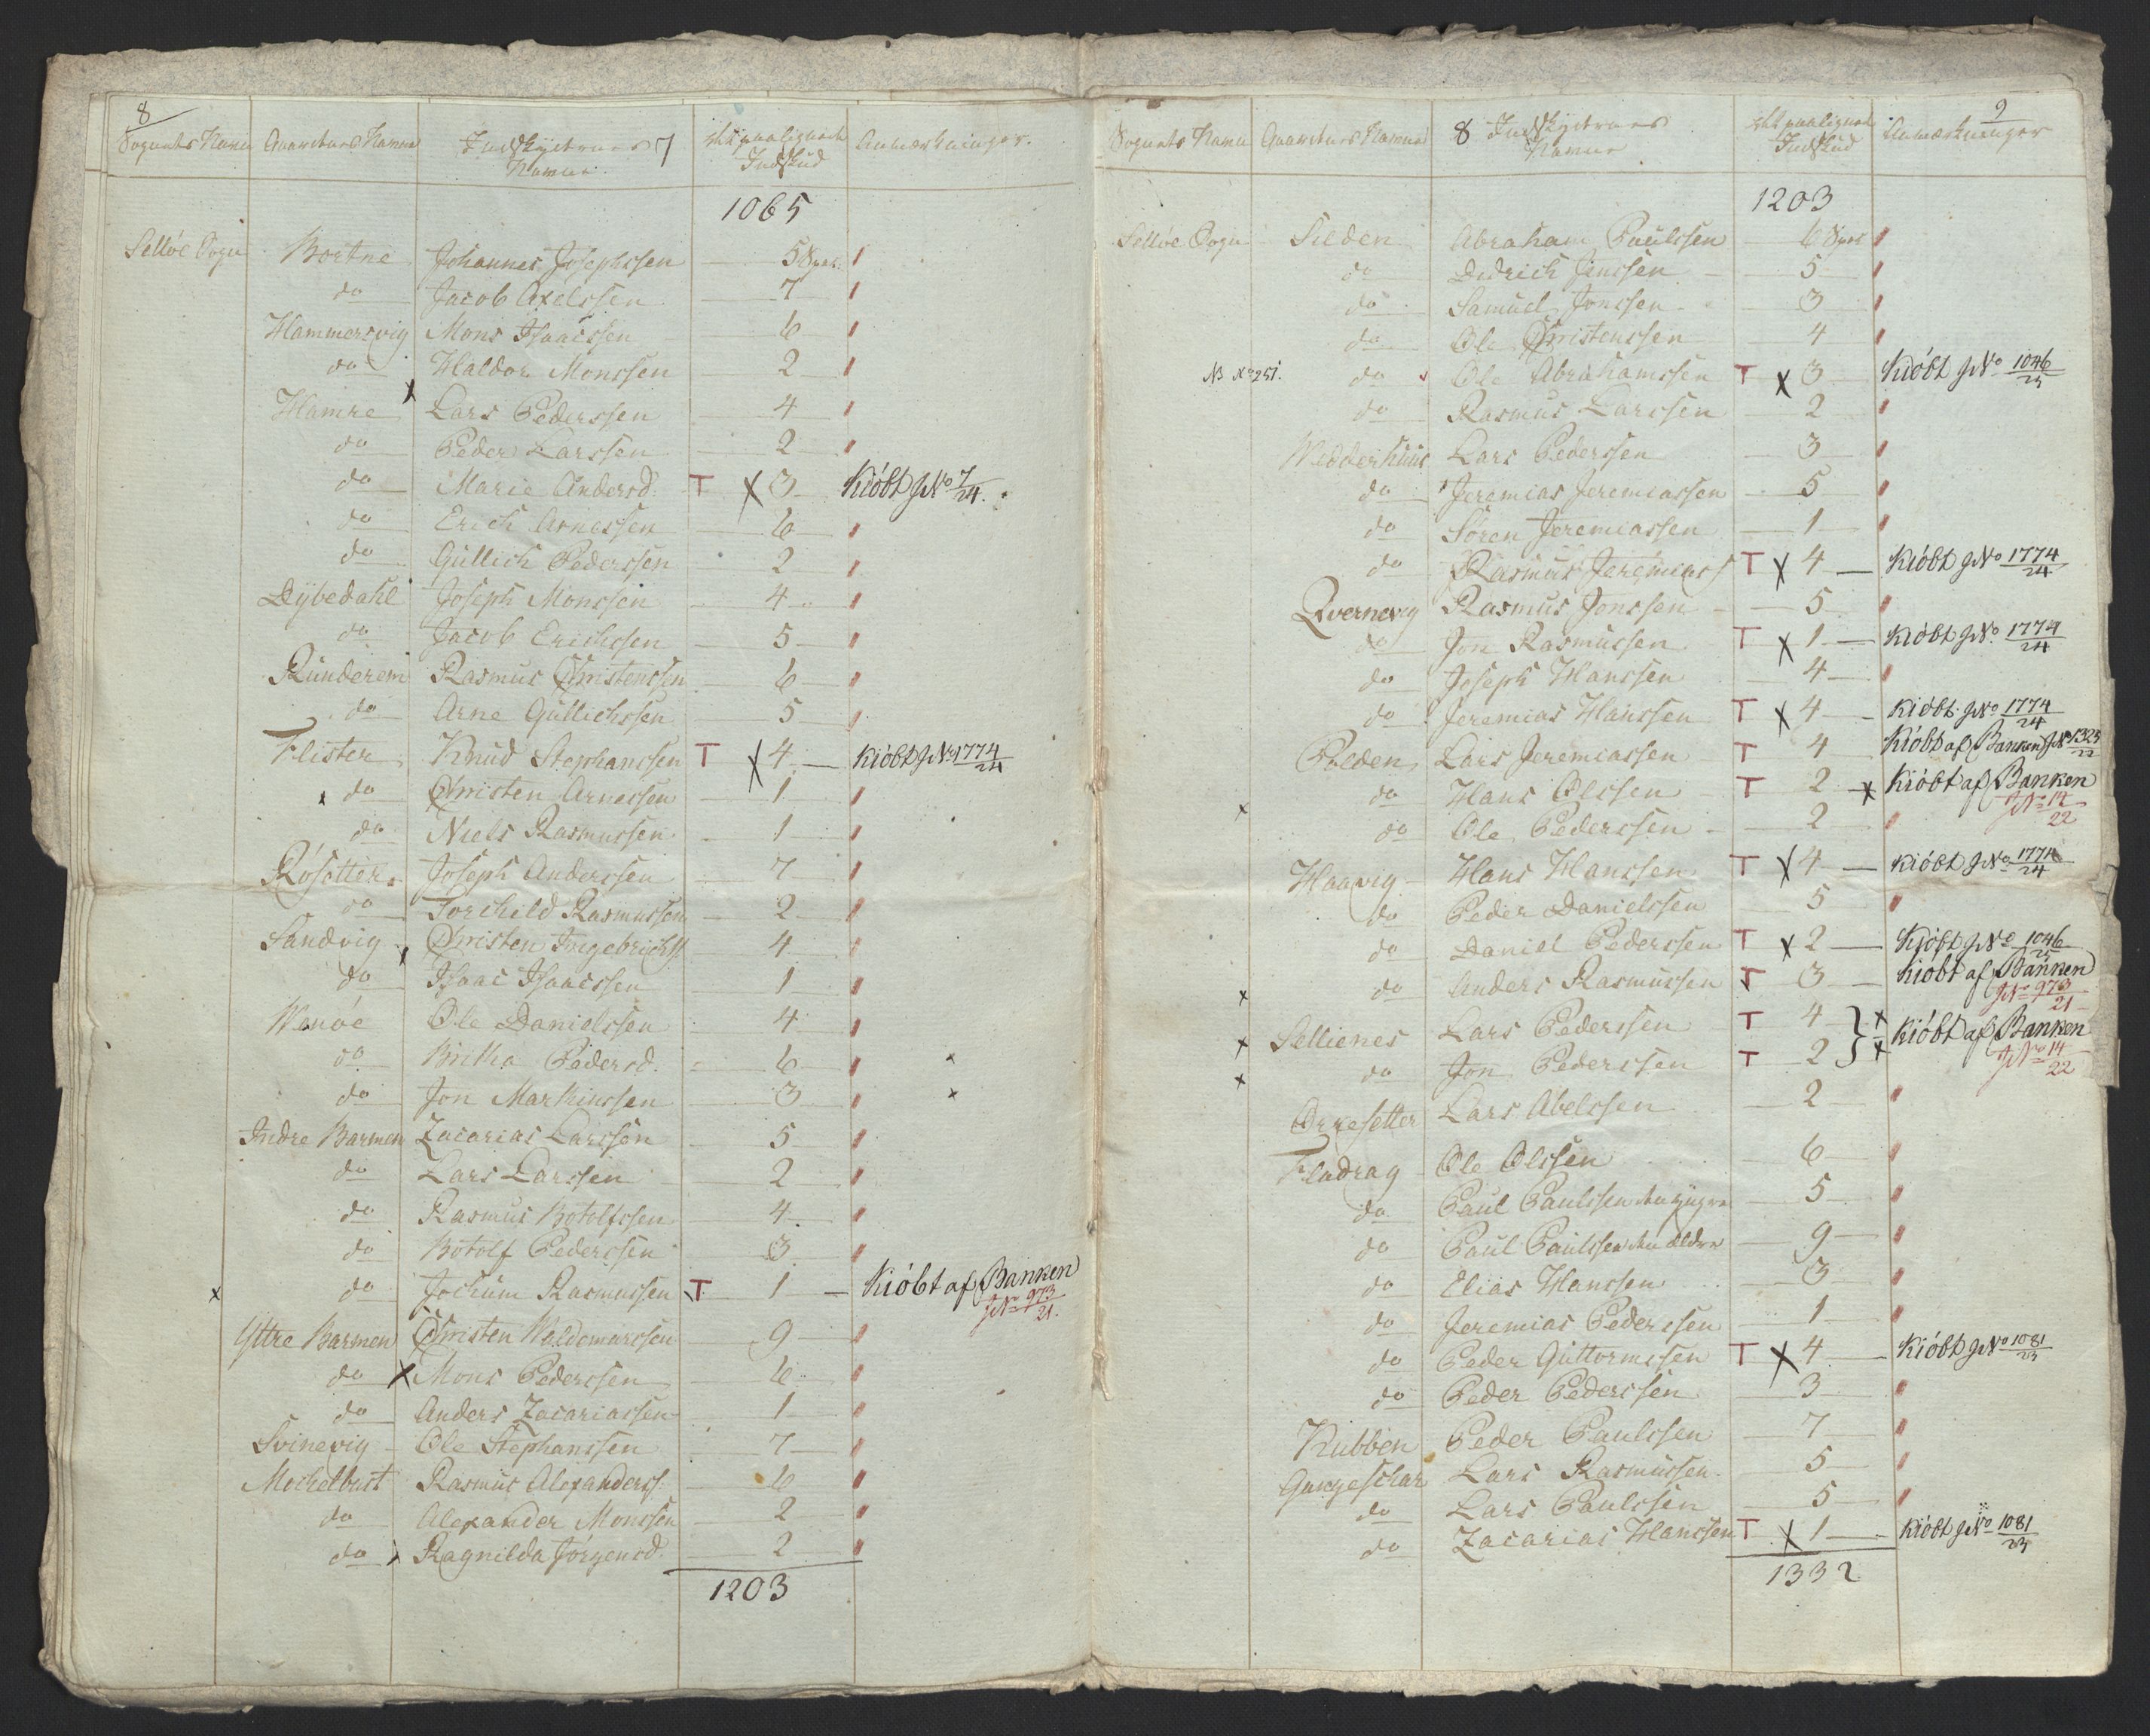 8
Sognets Navn Gaardenes Navne Indskydernes 7 Navne paalignede Indskud Anmærkninger.
1065
Selløe Sogn Bortne Johannes Josephssen 5 Spec. "
do Jacob Axelssen 7 "
Hammersvig Mons Isaacssen 6 "
do Haldor Monssen 2 "
Hamre x Lars Pederssen 4 "
do Peder Larssen 2 "
do Marie Andersd. T x 3 Kiöbt JNo 7/24.
do Erich Arnessen 6 "
do Gullich Pederssen 2 "
Dybedahl Joseph Monssen 4 "
do Jacob Erichssen 5 "
Runderem Rasmus Christenssen 6 "
do Arne Gullichssen 5 "
Flister Knud Stephanssen T x 4 Kiöbt JNo 1774/24
x do Christen Arnessen 1 "
do Niels Rasmussen 1 "
Røsetter Joseph Anderssen 7 "
do Torchild Rasmussen 2 "
Sandvig x Christen Ingebrichss 4 "
do Isaac Isaacssen 1 "
Wenøe Ole Danielssen 4 "
do Britha Pedersd. 6 " x
do Jon Markussen 3 " x
Indre Barmen Zacarias Larssen 5 "
do Lars Larssen 2 "
do Rasmus Botolfssen 4 "
do Botolf Pederssen 3 "
x do Jochum Rasmussen T 1 Kiöbt af Banken
JNo 973/21.
Yttre Barmen Christen Waldemarssen 9 "
do x Mons Pederssen 6 "
do Anders Zacariassen 1 "
Svinevig Ole Stephanssen 7 "
Mechelbust Rasmus Alexanderss. 6 "
do Alexander Monssen 2 "
do x Ragnilda Jørgensd. 2 "
1203
9
Sognets Navn Gaardenes Navne 8 Indskydernes Navne paalignet Indskud Anmærkninger
1203
Selløe Sogn Silden Abraham Paulssen 6 Spec "
do Didrich Jenssen 5 "
do Samuel Jonssen 3 "
do Ole Christenssen 4 "
NB No 251. do Ole Abrahamssen T x 3 Kiöbt JNo 1046/23
do Rasmus Larssen 2 "
Wedderhuus Lars Pederssen 3 "
do Jeremias Jeremiassen 5 "
do Søren Jeremiassen 1 "
do Rasmus Jeremiass T x 4 Kiöbt JNo 1774/24
Qvernevig Rasmus Jonssen 5 "
do Jon Rasmussen T x 1 Kiöbt JNo 1774/24
do Joseph Hanssen 4 "
do Jeremias Hanssen T x 4 Kiöbt JNo 1774/24
Polden Lars Jeremiassen T 4 Kiöbt af Banken JNo 1325/22
do Hans Olssen T 2 x Kiöbt af Banken
JNo 14/22
x do Ole Pederssen 2 "
Haavig Hans Hanssen T x 4 Kiöbt JNo 1774/24
do Peder Danielssen 5 "
do Daniel Pederssen T x 2 Kiöbt JNo 1046/23
x do Anders Rasmussen T 3 Kiöbt af Banken
JNo 973/21
x Sellienes Lars Pederssen T 4 } x Kiöbt af Banken
x do Jon Pederssen T 2 } x JNo 14/22
Orresetter Lars Abelssen 2 "
Fladrag Ole Olssen 6 "
do Paul Paulssen den yngre 5 "
do Paul Paulssen den Eldre 9 "
do Elias Hanssen 3 "
do Jeremias Pederssen 1 "
do Peder Guttormssen T x 4 Kiöbt JNo 1081/23
do Peder Pederssen 3 "
Kubben Peder Paulssen 7 "
Gangeschar Lars Rasmussen 5 "
do Lars Paulssen 5 "
do Zacarias Hanssen T x 1 Kiöbt JNo 1081/23
1332